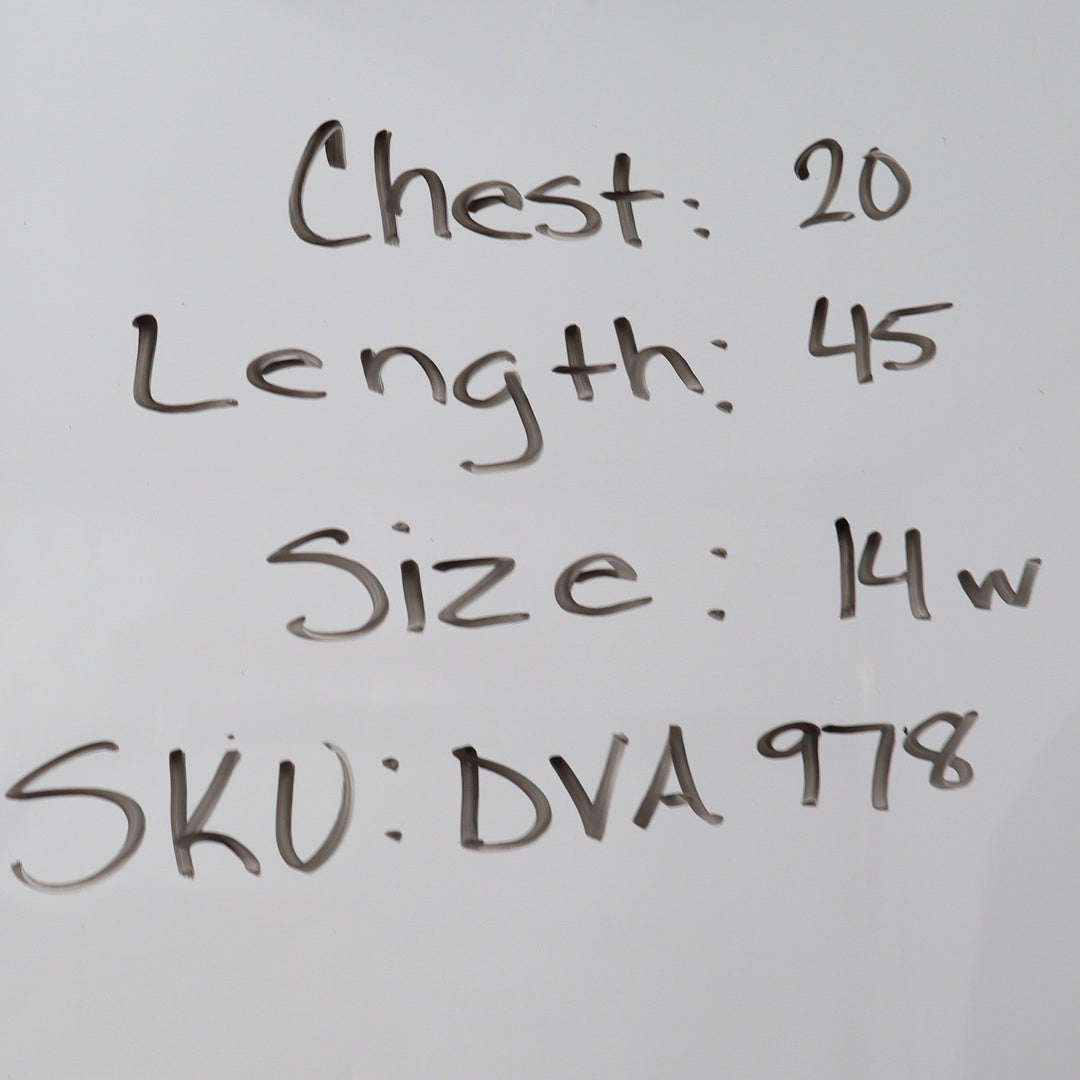 Chest: 20
Length: 45
Size: 14w
SKU: DVA 978